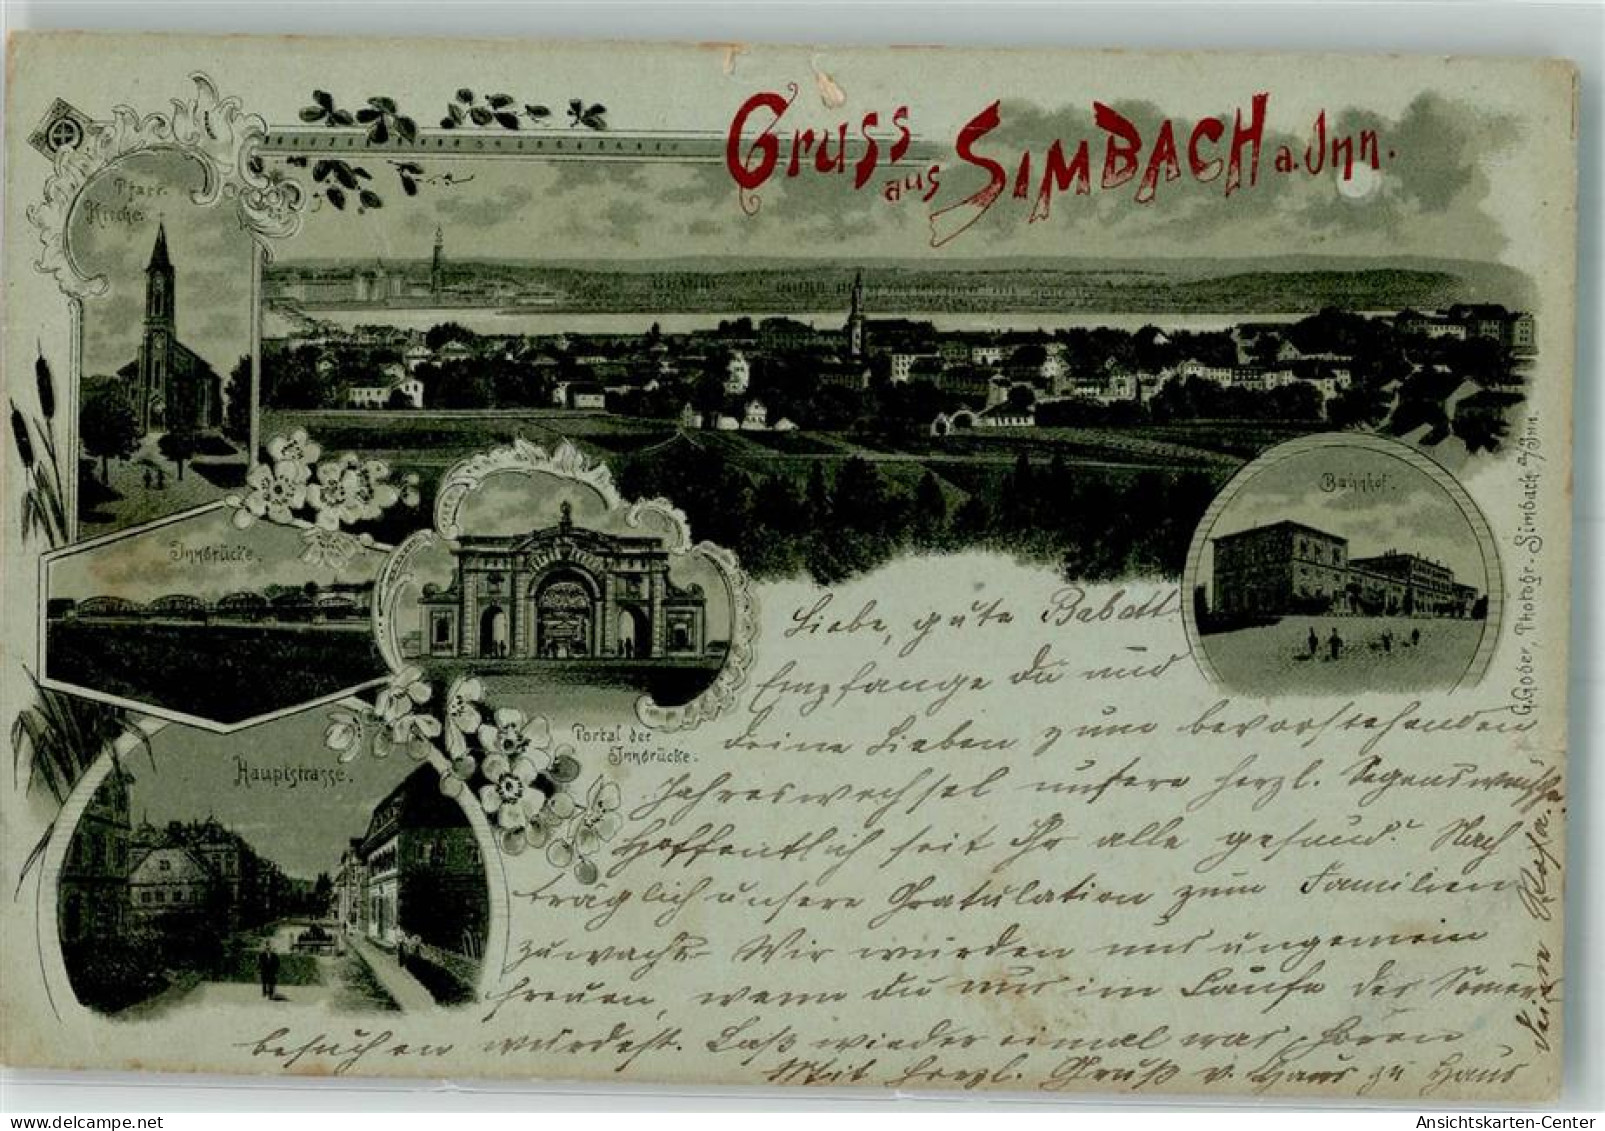 Gruss aus SIMBACH a. Inn.
Pfarr-
Kirche.
Innbrücke.
Portal der
Innbrücke.
Bahnhof.
Hauptstrasse.
G. Gober, Photogr. Simbach a/Inn.
Liebe, gute Babett.
Empfange du und
deine Lieben zum bevorstehenden
Jahreswechsel unsere herzl. Segenswünsche.
Hoffentlich seit Ihr alle gesund? Nach
träglich unsere Gratulation zum Familien
zuwachs. Wir würden uns ungemein
freuen, wenn du uns im Laufe des Somers
besuchen würdest. Laß wieder einmal was hören
Mit herzl. Gruß v. Haus zu Haus
Deine Rosa.
Ansichtskarten-Center